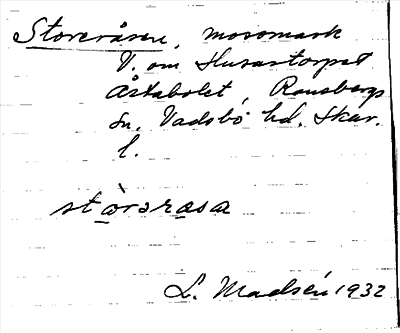 Storeråsen, mosomark
V. om Husartorpet
Åstabolet, Ransbergs
sn. Vadsbo hd. Skar.
l.
stòrərasa
L. Madsén 1932